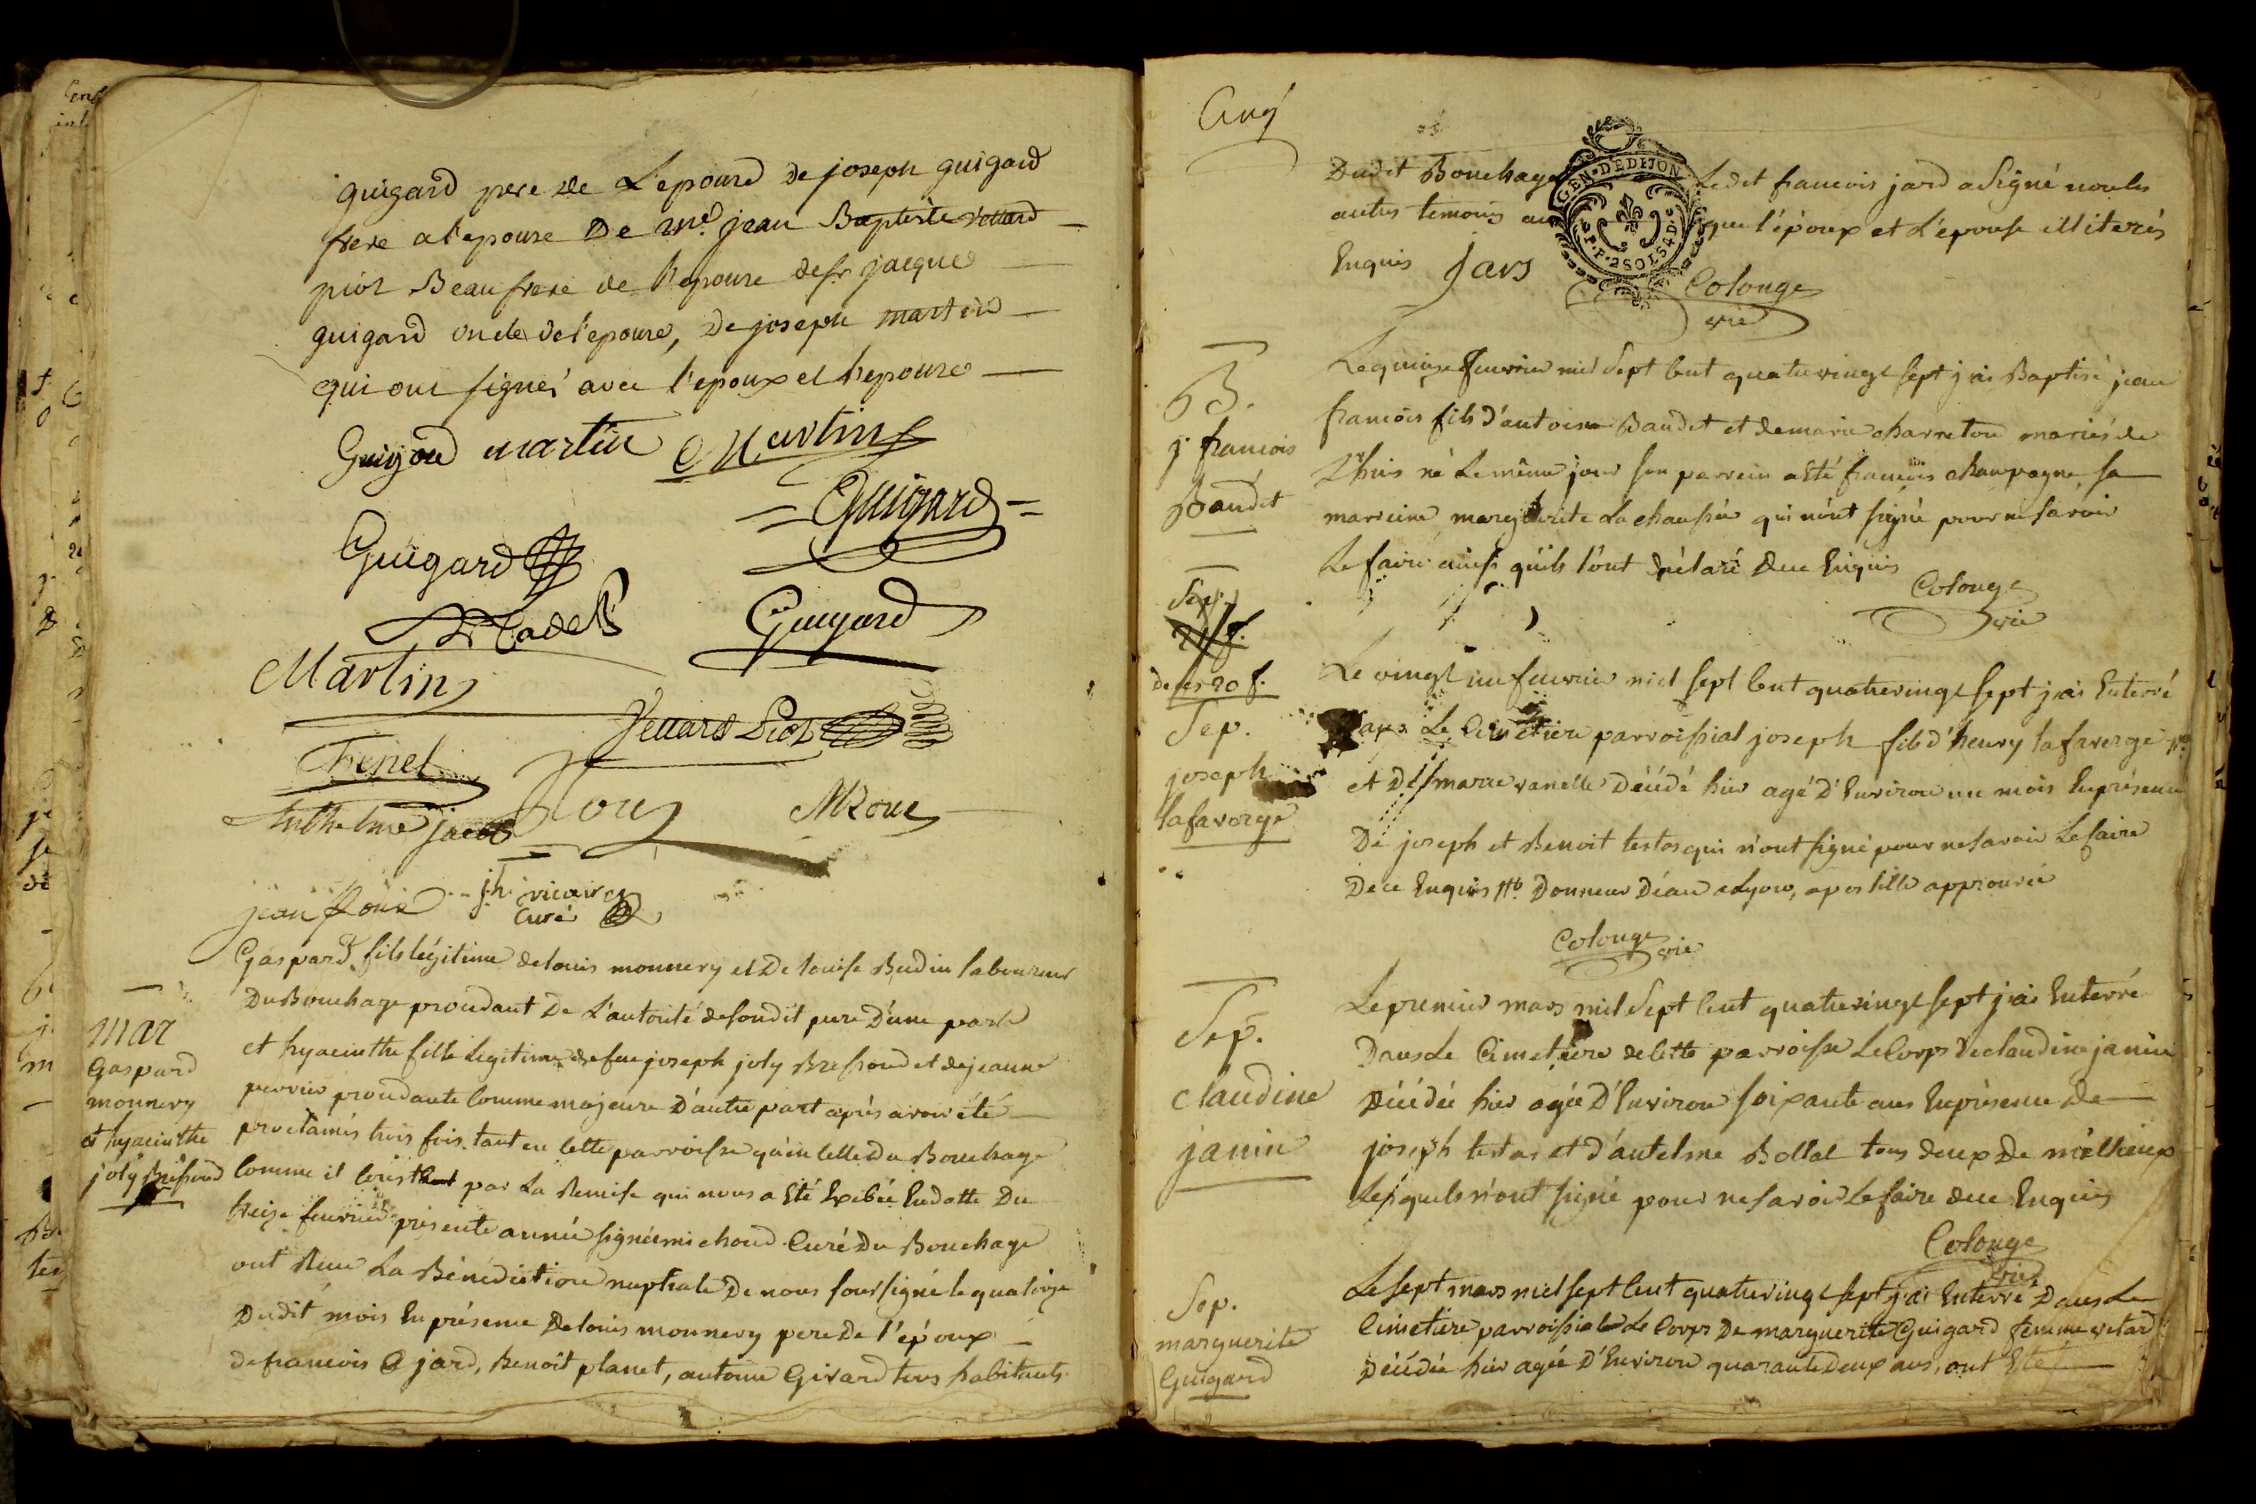 guigard pere de L'epouse de joseph guigard
frere a l'epouse De me. jean Baptiste vettard
piot Beaufrere de l'epouse de sr jacque
guigard oncle de l'epouse, De joseph martin
qui ont signés avec l'epoux et l'epouse
Guigard martin Martin
Guigard Guigard
Cadet Guigard
Martin
Vettard Piot
Thenel
Anthelme jacob Roux MRoux
jean Roux jh. vicaire
Curé
mar
Gaspard
monnery
et hyacinthe
joly Bressoud
Gaspard fils légitime de louis monnery et De louise Budin laboureur
Du Bouchage procedant De L'autorité de sondit pere D'une part
et hyacinthe fille legitime de feu joseph joly Bressoud et de jeanne
perrier procedante Comme majeure D'autre part après avoir été
proclamés trois fois tant en Cette parroisse qu'en Celle Du Bouchage
Comme il Conste par La Remise qui nous a Eté Exibée En datte Du
treize fevrier presente année signée michoud Curé Du Bouchage
ont Recu La Bénédiction nuptiale De nous soussigné le quatorze
Dudit mois En présence De louis monnery pere De l'époux
de francois jard, Benoit planet, antoine Girard tous habitants
Dudit Bouchage Ledit francois jard a Signé non les
GEN. DE DIJON
P.P. 2 SOLS 4 D.
autres temoins que l'époux et L'épouse illiterés
Enquis Jars
Colonge
vic
B.
j. francois
Baudet
Le quinze fevrier mil Sept Cent quatrevingt sept j'ai Baptisé jean
francois fils d'antoine Baudet et de marie charreton mariés de
L'huis né Le même jour son parrein a Eté francois champagne, sa
marreine marguerite La chaussée qui n'ont signé pour ne savoir
Le faire ainsi qu'ils l'ont déclaré De ce Enquis
Colonge
vic
Sep.
21 f.
de ces 20 f.
Sep.
joseph
lafaverge
Le vingt un fevrier mil sept Cent quatrevingt sept j'ai Enterré
Dans Le Cimetiere parroissial joseph fils d'henry lafaverge
et De marie vanelle Décédé hier agé D'Environ un mois En présence
De joseph et Benoit testas qui n'ont signé pour ne savoir Le faire
De ce Enquis Donneur D'eau a Lyon, apostille approuvée
Colonge
vic
Sep.
claudine
janin
Le premier mars mil Sept Cent quatrevingt sept j'ai Enterré
Dans Le Cimetiere de Cette parroisse Le Corps De claudine janin
Décédée hier agée D'Environ soixante ans En présence De
joseph testas et d'antelme Bollal tous deux De
Lesquels n'ont signé pour ne savoir Le faire de ce Enquis
Colonge
vic
Sep.
marguerite
Guigard
Le sept mars mil sept Cent quatrevingt sept j'ai Enterré Dans Le
Cimetiere parroissial Le Corps De marguerite Guigard femme
Décédée hier agée D'Environ quarante Deux ans, ont Eté